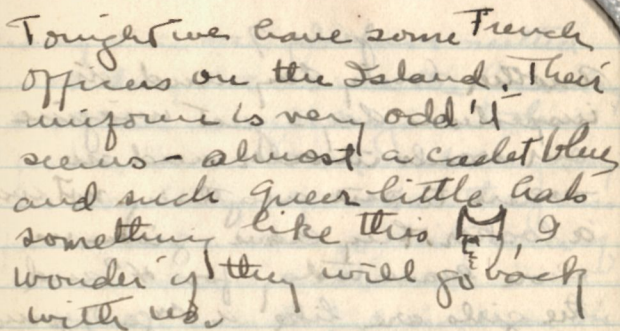 Tonight we have some French
officers on the Island. Their
uniform is very odd it
seems - almost a cadet blue
and such queer little hats
something like this , I
wonder if they will go back
with us.